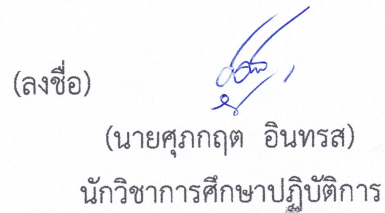 (ลงชื่อ)
(นายศุภกฤต อินทรส)
นักวิชาการศึกษาปฏิบัติการ